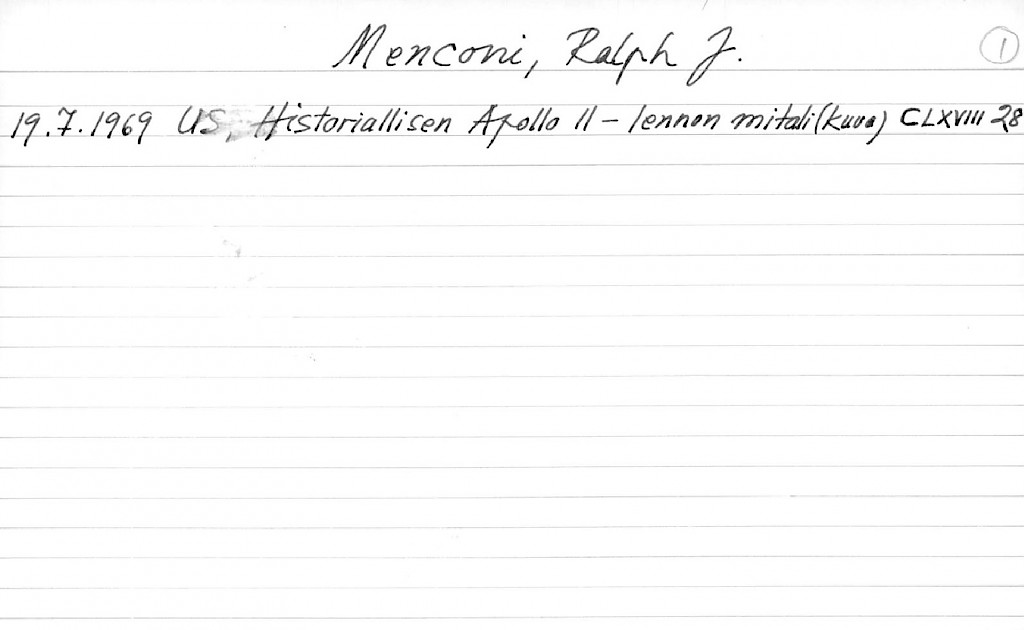 Menconi, Ralph J. 1
19.7.1969 US, Historiallisen Apollo 11 - lennon mitali (kuva) CLXVIII 28